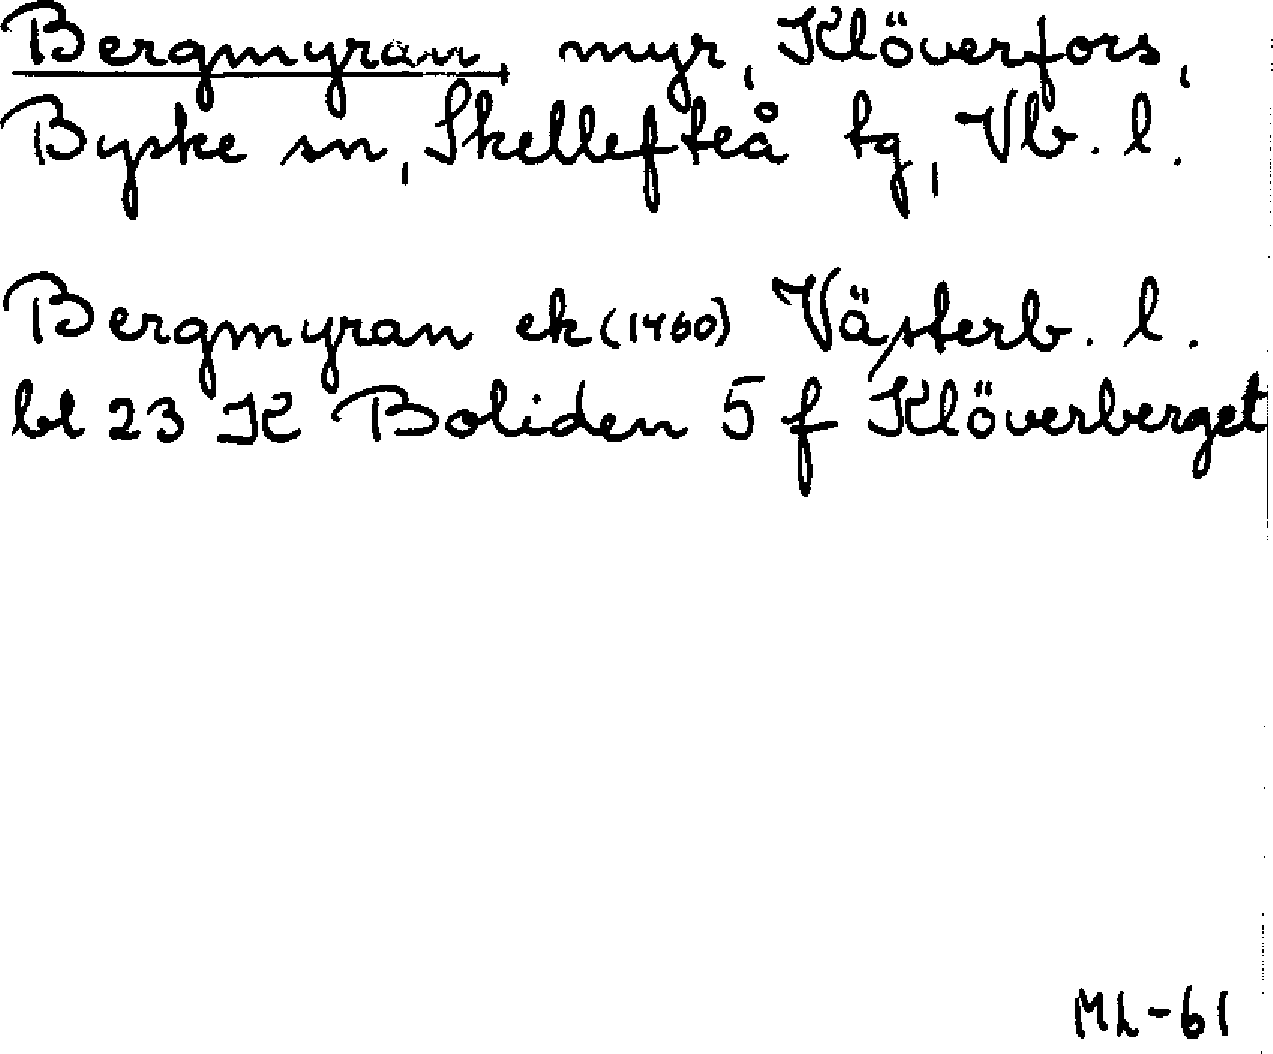 Bergmyran, myr, Klöverfors,
Byske sn, Skellefteå tg, Vb. l.
Bergmyran ek (1960) Västerb. l.
bl 23 K Boliden 5 f Klöverberget
ML-61